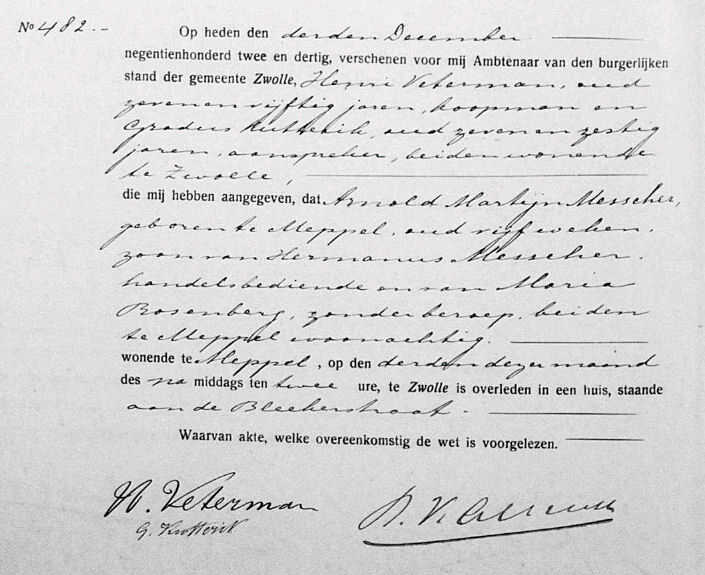 No 482.-
Op heden den derden December
negentienhonderd twee en dertig, verschenen voor mij Ambtenaar van den burgerlijken
stand der gemeente Zwolle, Henri Veterman, oud
zevenenvijftig jaren, koopman en
oud zevenenzestig
jaren, aanspreker, beiden wonende
te Zwolle,
die mij hebben aangegeven, dat Arnold Martijn Messcher,
geboren te Meppel, oud vijf weken,
zoon van Hermanus Messcher,
handelsbediende en van Maria
Rosenberg, zonder beroep, beiden
te Meppel woonachtig.
wonende te Meppel, op den derden dezer maand
des na middags ten twee ure, te Zwolle is overleden in een huis, staande
aan de Bleekerstraat.
Waarvan akte, welke overeenkomstig de wet is voorgelezen.
H. Veterman
G.